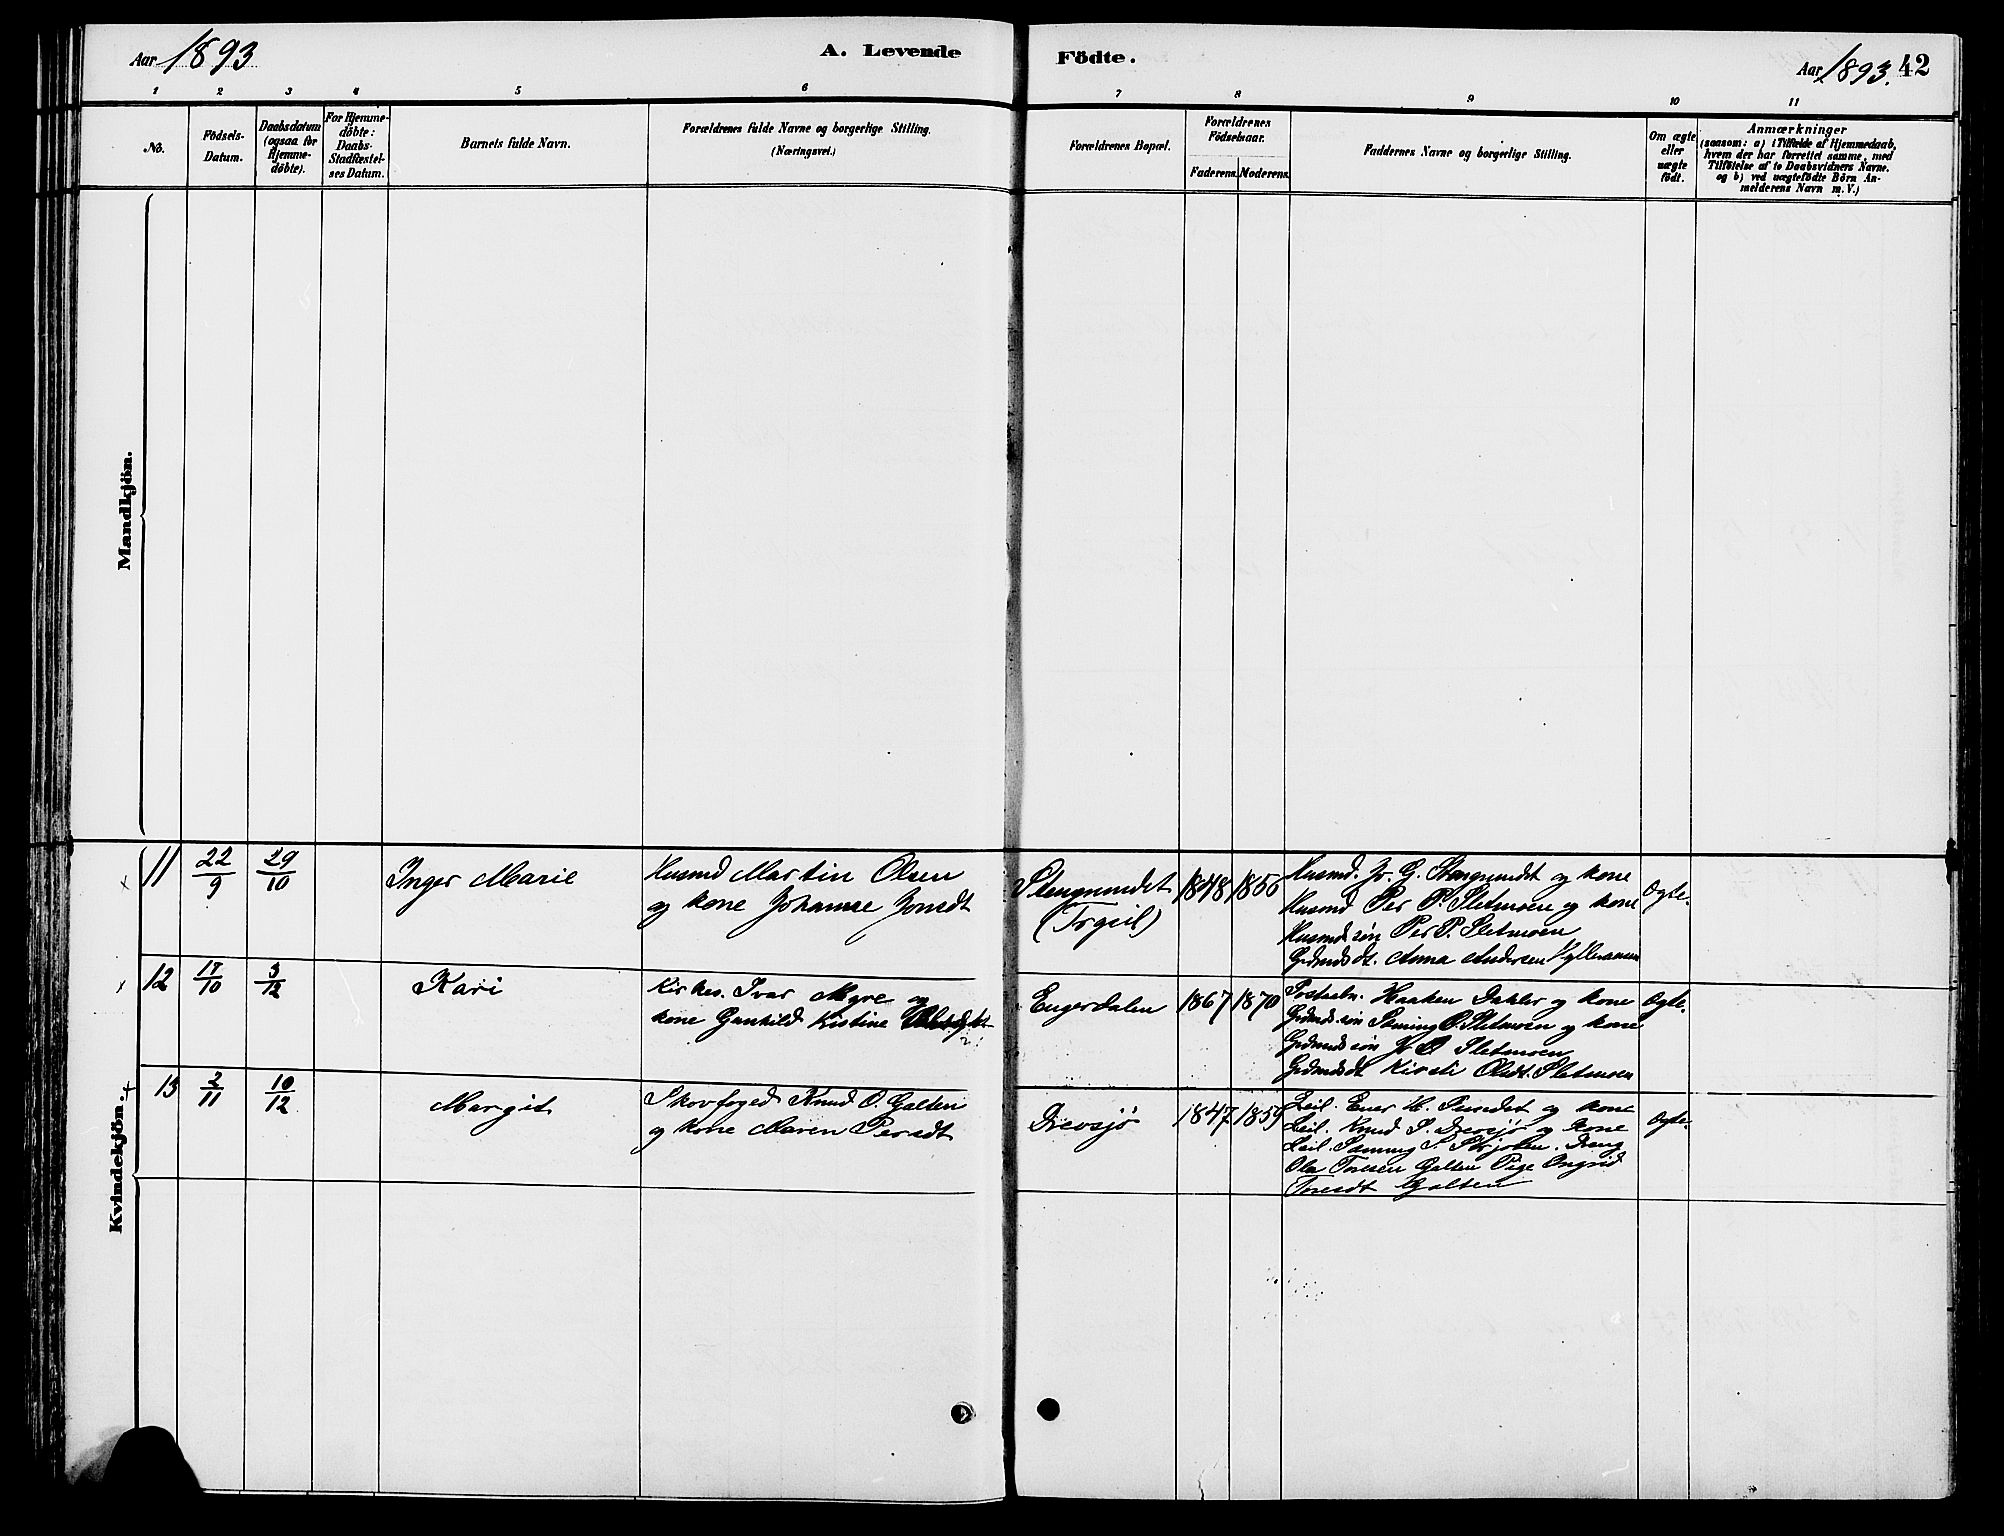 Aar 1893
A. Levende
Födte.
Aar 1893. 42
1 2 3 4 5 6 7 8 9 10 11
No.
Födsels-
Datum.
Daabsdatum
(ogsaa for
Hjemme-
döbte).
For Hjemme-
döbte:
Daabs-
Stadfæstel-
ses Datum.
Barnets fulde Navn.
Forældrenes fulde Navne og borgerlige Stilling.
(Næringsvei.)
Forældrenes Bopæl.
Forældrenes
Födselsaar.
Faderens. Moderens.
Faddernes Navne og borgerlige Stilling.
Om ægte
eller
uægte
födt.
Anmærkninger
(saasom: a) i Tilfælde af Hjemmedaab,
hvem der har forrettet samme, med
Tilföielse af to Daabsvidners Navne.
og b) ved uægtefödte Börn An-
melderens Navn m. V.)
Mandkjön.
Kvindekjön.
11 22/9 29/10 Inger Marie
Husmd Martin Olsen
og kone Johanne Jonsdt
Stengrundet
(Trysil)
1848 1856
Husmd. Jo. G. Stengrundet og kone
Husmd Per P. Sletmoen og kone
Husmds søn Per P. Sletmoen
Grdmds dt. Anna Andersen
Ogte.
12 17/10 3/12 Kari
Kirkes. Ivar Myre og
kone Gunhild Kistine
Engerdalen
1867 1870
Postaabn. Haaken Dahler og kone
Grdmds søn Sæming O. Sletmoen og kone
Grdmds søn Jo O Sletmoen
Grdmdsdt Kirsti Olsdt. Sletmoen
Ogte.
13 2/11 10/12 Margit
Skovfoged Knud O. Galten
og kone Maren Persdt
Drevsjø
1847 1859
Leil. Ener H. Sundet og kone
Leil. Knud S. Drevsjø og kone
Leil. Sæming S. Dreng
Ola Toresen Galten Pige Ingrid
Toresdt Galten
Ogte.